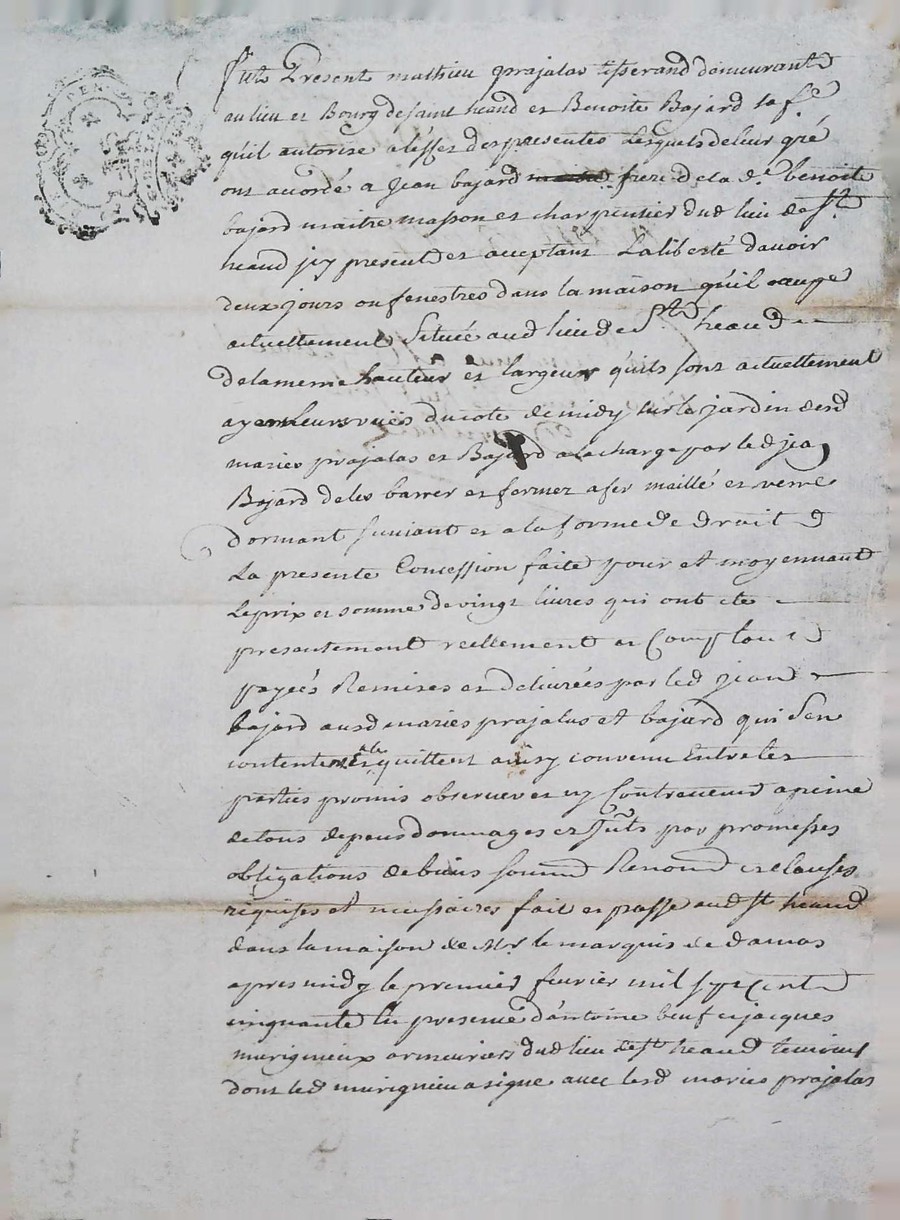 Fut Present mathieu prajalas tisserand demeurant
au lieu et Bourg de saint heand et Benoite Bajard sa fe
qu'il autorise a l'effet des presentes Lesquels de leur gré
ont acordé a Jean bajard frere de la de benoite
bajard maitre masson et charpentier dud lieu de St
heand jcy present et acceptant La liberté davoir
deux jours ou fenestres dans la maison qu'il ocupe
actuellement Situeé aud lieu de St heand
de la meme hauteur et largeur qu'ils sont actuellement
ayant leurs vuës du coté de midy sur le jardin desd
maries prajalas et Bajard a la charge par led jean
Bajard de les barrer et fermer a fer maillé et verre
dormant suivant et a la forme de droit
La presente Concession faite pour et moyennant
Le prix et somme de vingt livres qui ont ete
presentement reellement et Comptant
payeés Remises et delivrées par led jean
bajard ausd maries prajalas et bajard qui s'en
contentent et le quittent ainsy convenu Entre les
parties promis observer et ny Contrevenir a peine
de tous depens dommages et Jnts par promesses
obligations de biens soumis Renond et clauses
requises et necessaires fait et passé aud St heand
dans la maison de Mr le marquis de damas
apres midy le premier fevrier mil sept Cent
cinquante En presence d'antoine beuf et jacques
murigneux armeuriers dud lieu de St heand temoins
dont led murigneu a signe avec lesd maries prajalas